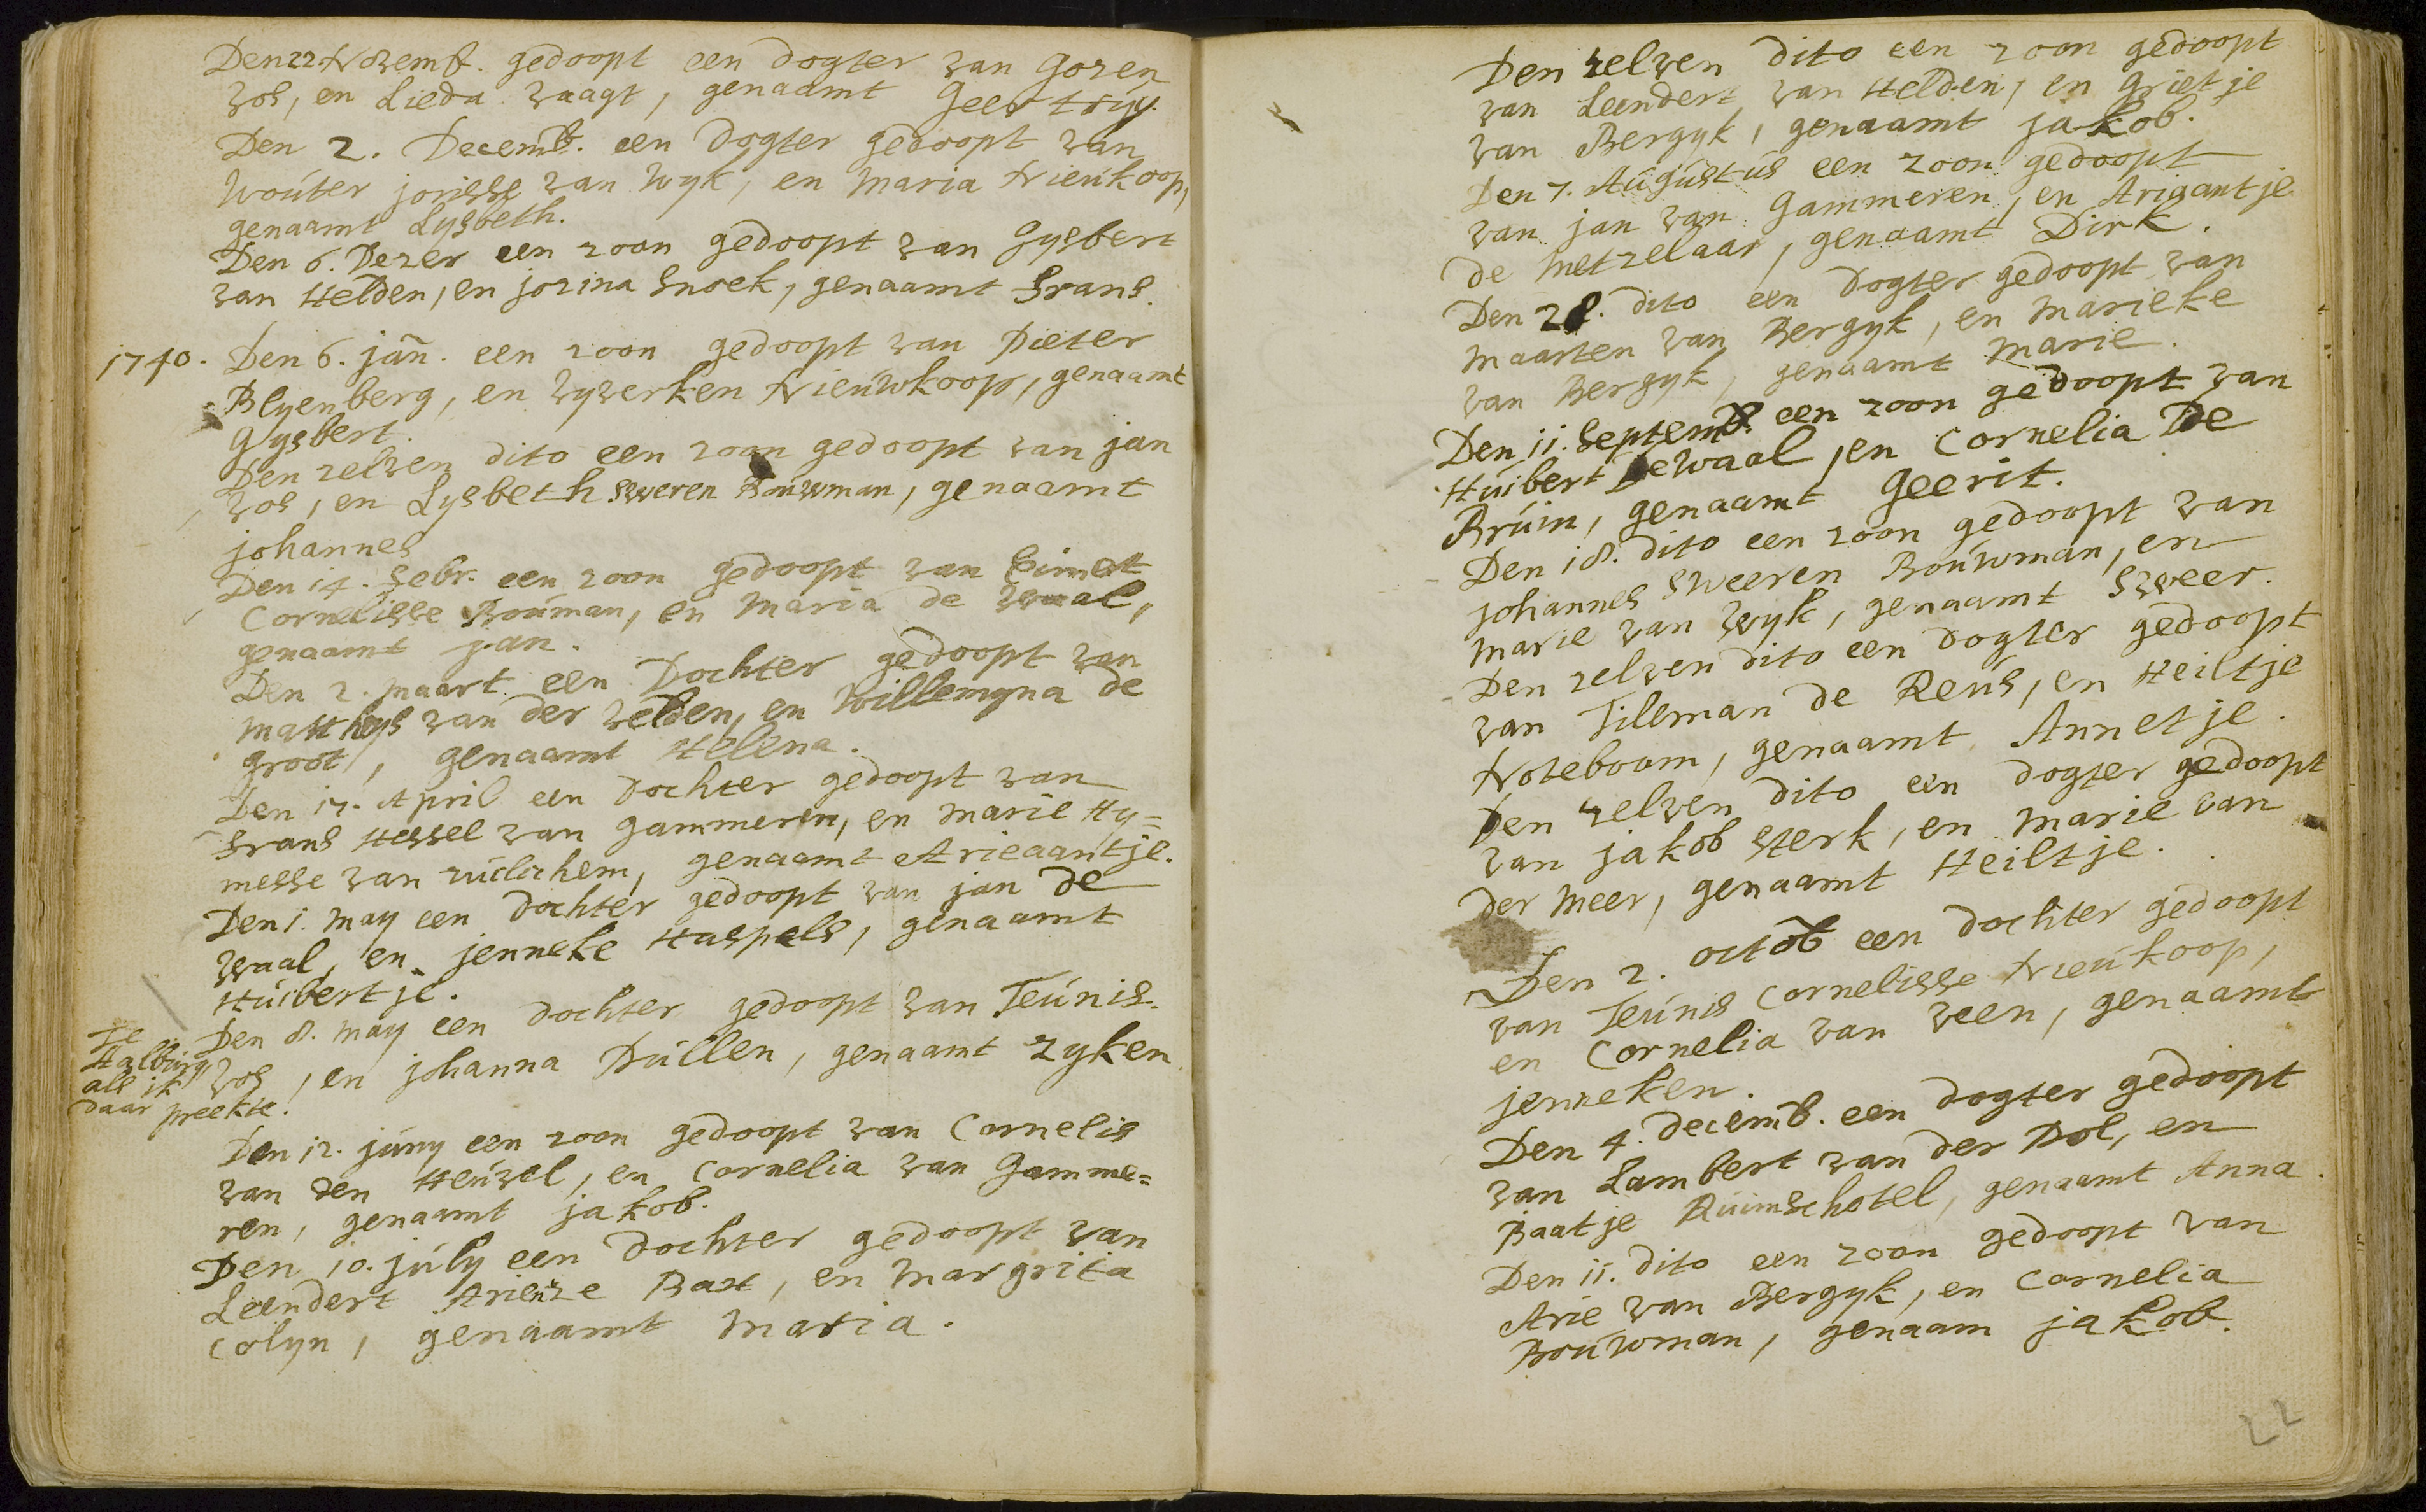 Den 22 Novemb. gedoopt een dogter van Gozen
vos, en Lieda vaagt, genaamt Geertruy.
Den 2. Decemb. een dogter gedoopt van
Wouter jorisse van Wyk, en Maria Nieukoop,
genaamt Lysbeth.
Den 6. Dezer een zoon gedoopt van Gysbert
van Helden, en jozina Snoek, genaamt Frans.
1740. Den 6. jan. een zoon gedoopt van Pieter
Blyenberg, en Vyverken Nieuwkoop, genaamt
Gysbert.
Den zelven dito een zoon gedoopt van jan
vos, en Lysbeth Sweren Bouwman, genaamt
johannes
Den 14. Febr. een zoon gedoopt van
Cornelisse Bouman, en Maria de Waal,
genaamt jan.
Den 2. Maart een Dochter gedoopt van
Matthys van der Velden, en Willemyna de
Groot, genaamt Helena.
Den 17. April een Dochter gedoopt van
Frans Hessel van Gammeren, en Marie Hy=
messe van zuilichem, genaamt Arieaantje.
Den 1. May een Dochter gedoopt van jan de
Waal, en jenneke Haspels, genaamt
Huibertje.
Den 8. May een Dochter gedoopt van Teunis
vos, en johanna Dullen, genaamt zyken
Te
Aalburg
als ik
daar preekte.
Den 12. juny een zoon gedoopt van Cornelis
van den Heuvel, en Cornelia van Gamme=
ren, genaamt jakob.
Den 10. july een Dochter gedoopt van
Leendert Arienze Bax, en Margrita
Colyn, genaamt Maria.
Den zelven dito een zoon gedoopt
van Leendert van Helden, en Grietje
van Bergyk, genaamt jakob.
Den 7. Augustus een zoon gedoopt
van jan van Gammeren, en Arigantje
de Metzelaar, genaamt Dirk.
Den 28. dito een Dogter gedoopt van
Maarten van Bergyk, en Marieke
van Bergyk, genaamt Marie.
Den 11. Septemb. een zoon gedoopt van
Huibert De Waal, en Cornelia De
Bruin, genaamt Geerit.
Den 18. dito een zoon gedoopt van
johannes Sweeren Bouwman, en
Marie van Wyk, genaamt Sweer.
Den zelven dito een dogter gedoopt
van Tileman de Reus, en Heiltje
Noteboom, genaamt Annetje.
Den zelven dito een dogter gedoopt
van jakob Sterk, en Marie van
der Meer, genaamt Heiltje.
Den 2. octob een dochter gedoopt
van Teunis Cornelisse Nieukoop,
en Cornelia van Veen, genaamt
jenneken.
Den 4. decemb. een dogter gedoopt
van Lambert van der Pol, en
Baatje Ruimschotel, genaamt Anna.
Den 11. dito een zoon gedoopt van
Arie van Bergyk, en Cornelia
Bouwman, genaam jakob.
22